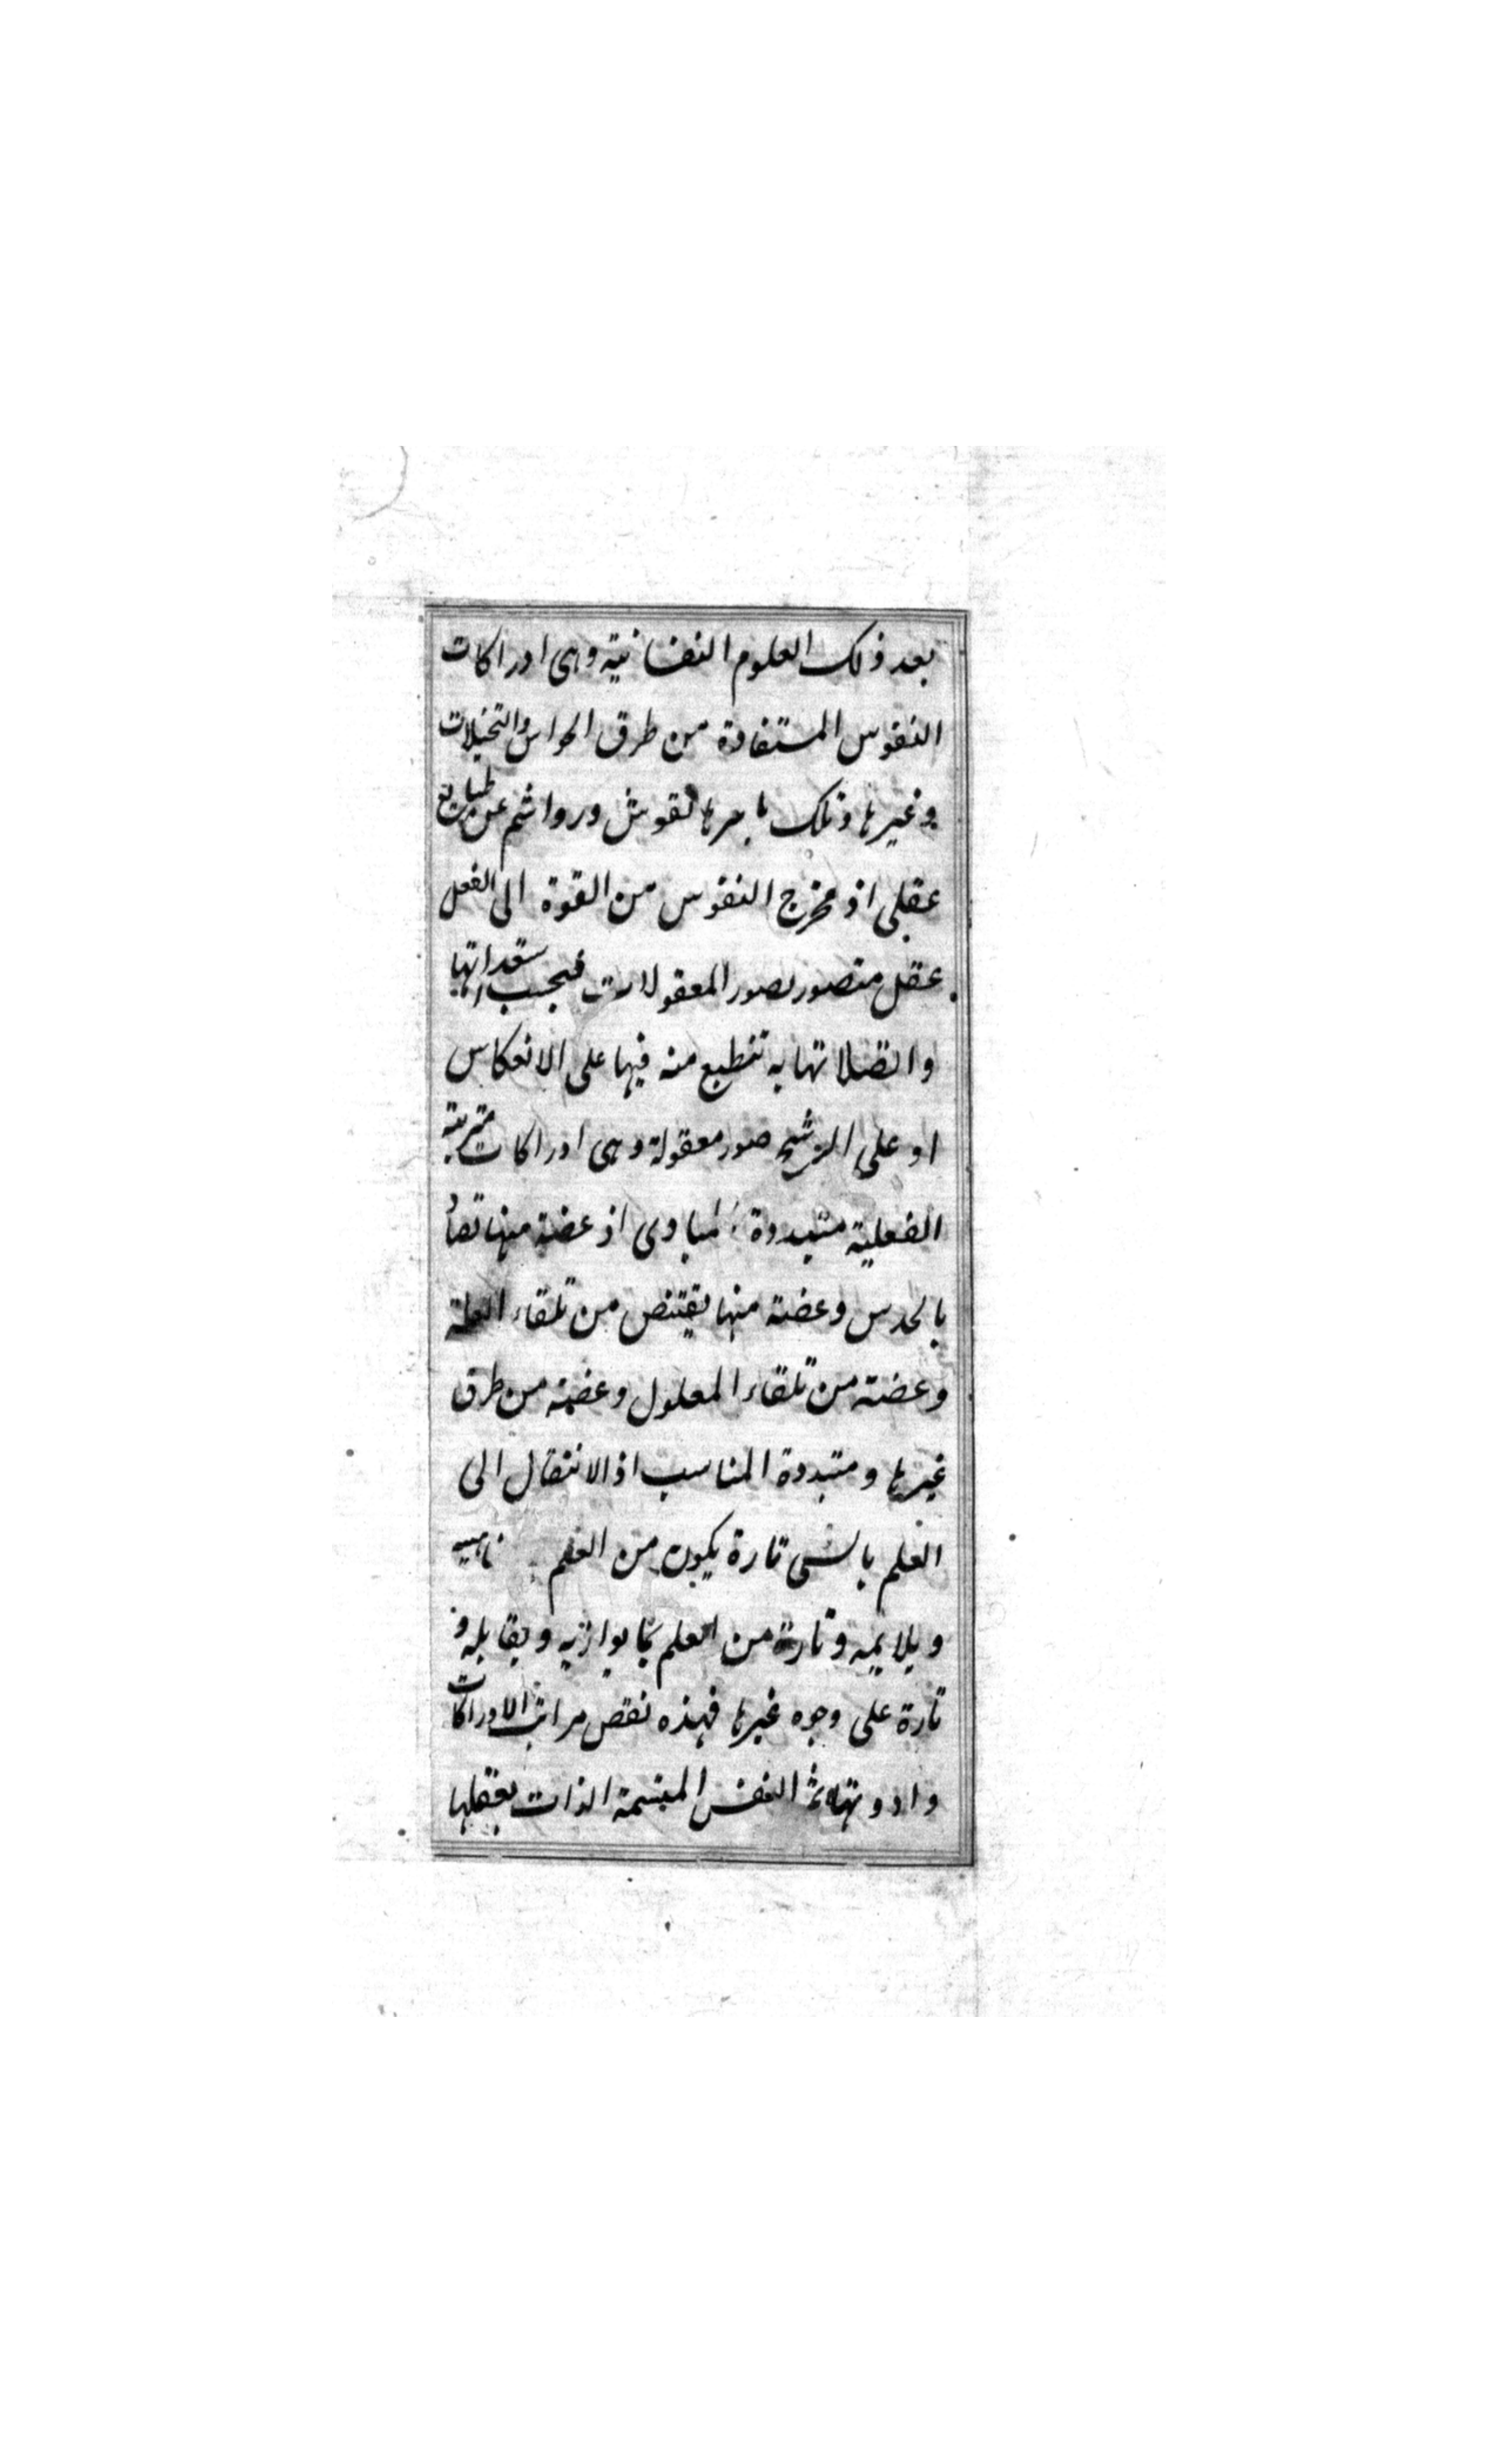 بعد ذلك العلوم النفسانية وهى ادراكات
النفوس المستفادة من طرق الحواس والتخيلات
وغيرها وتلك باسرها نقوش ورواشم عن طبايع
عقلى اذ مخرج النفوس من القوة الى الفعل
عقل متصور بصور المعقولات فبحسب استعداداتها
واتصلاتها به تنطبع منه فيها على الانعكاس
او على الرشح صور معقولة وهى ادراكات مترتبة
الفعلية متبددة المبادى اذ عضة منها تصاد
بالحدس وعضة منها يقتنص من تلقاء العلة
وعضة من تلقاء المعلول وعضة من طرق
غيرها ومتبددة المناسب اذ الانتقال الى
العلم بالشى تارة يكون من العلم
ويلايمه وتارة من العلم بما يوازيه ويقابله و
تارة على وجوه غيرها فهذه نقص مراتب الادراكات
وادونها ثم النفس الذات بعقلها